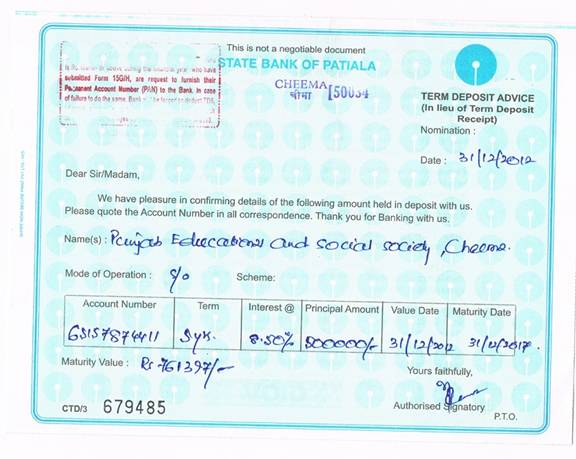 This is not a negotiable document
STATE BANK OF PATIALA
submitted Form 15G/H, are request to furnish their
Permanent Account Number (PAN) to the Bank. In case
of failure to do the same, Bank
CHEEMA
चीमा [50034
TERM DEPOSIT ADVICE
(In lieu of Term Deposit
Receipt)
Nomination :
Date : 31/12/2012
Dear Sir/Madam,
We have pleasure in confirming details of the following amount held in deposit with us.
Please quote the Account Number in all correspondence. Thank you for Banking with us.
Name(s) : Punjab Educational and Social Society, Cheema.
Mode of Operation : c/o Scheme:
Account Number Term Interest @ Principal Amount Value Date Maturity Date
65157874411 5yr. 8.50% 500000/- 31/12/2012 31/12/2017.
Maturity Value : Rs. 761397/-
Yours faithfully,
Authorised Signatory
P.T.O.
CTD/3 679485